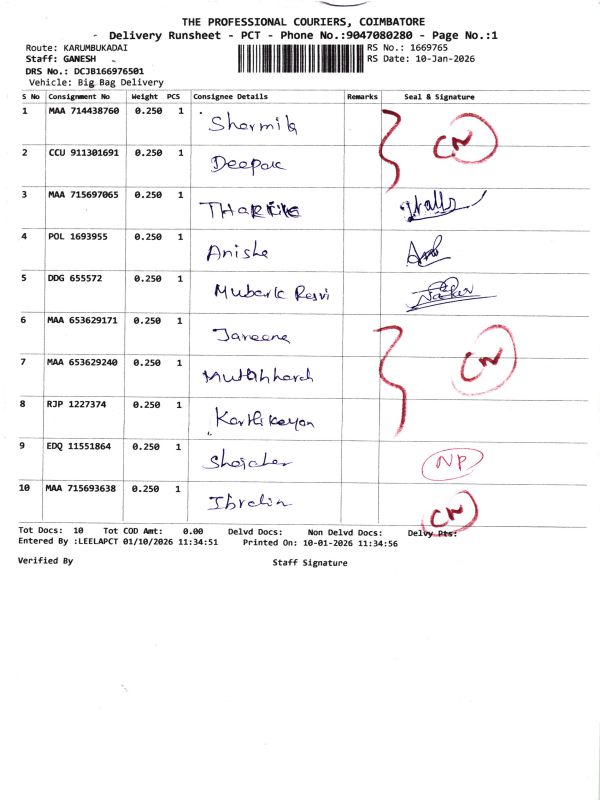 THE PROFESSIONAL COURIERS, COIMBATORE
- Delivery Runsheet - PCT - Phone No.:9047080280 - Page No.:1
Route: KARUMBUKADAI RS No.: 1669765
Staff: GANESH RS Date: 10-Jan-2026
DRS No.: DCJB166976501
Vehicle: Big Bag Delivery
S No Consignment No Weight PCS Consignee Details Remarks Seal & Signature
1 MAA 714438760 0.250 1 Sharmila CN
2 CCU 911301691 0.250 1 Deepak
3 MAA 715697065 0.250 1
4 POL 1693955 0.250 1 Anisha
5 DDG 655572 0.250 1 Mubarak Resvi
6 MAA 653629171 0.250 1 Jareena
7 MAA 653629240 0.250 1 CN
8 RJP 1227374 0.250 1 Karthikeyan
9 EDQ 11551864 0.250 1 NP
10 MAA 715693638 0.250 1 CN
Tot Docs: 10 Tot COD Amt: 0.00 Delvd Docs: Non Delvd Docs: Delvy Pts:
Entered By :LEELAPCT 01/10/2026 11:34:51 Printed On: 10-01-2026 11:34:56
Verified By Staff Signature